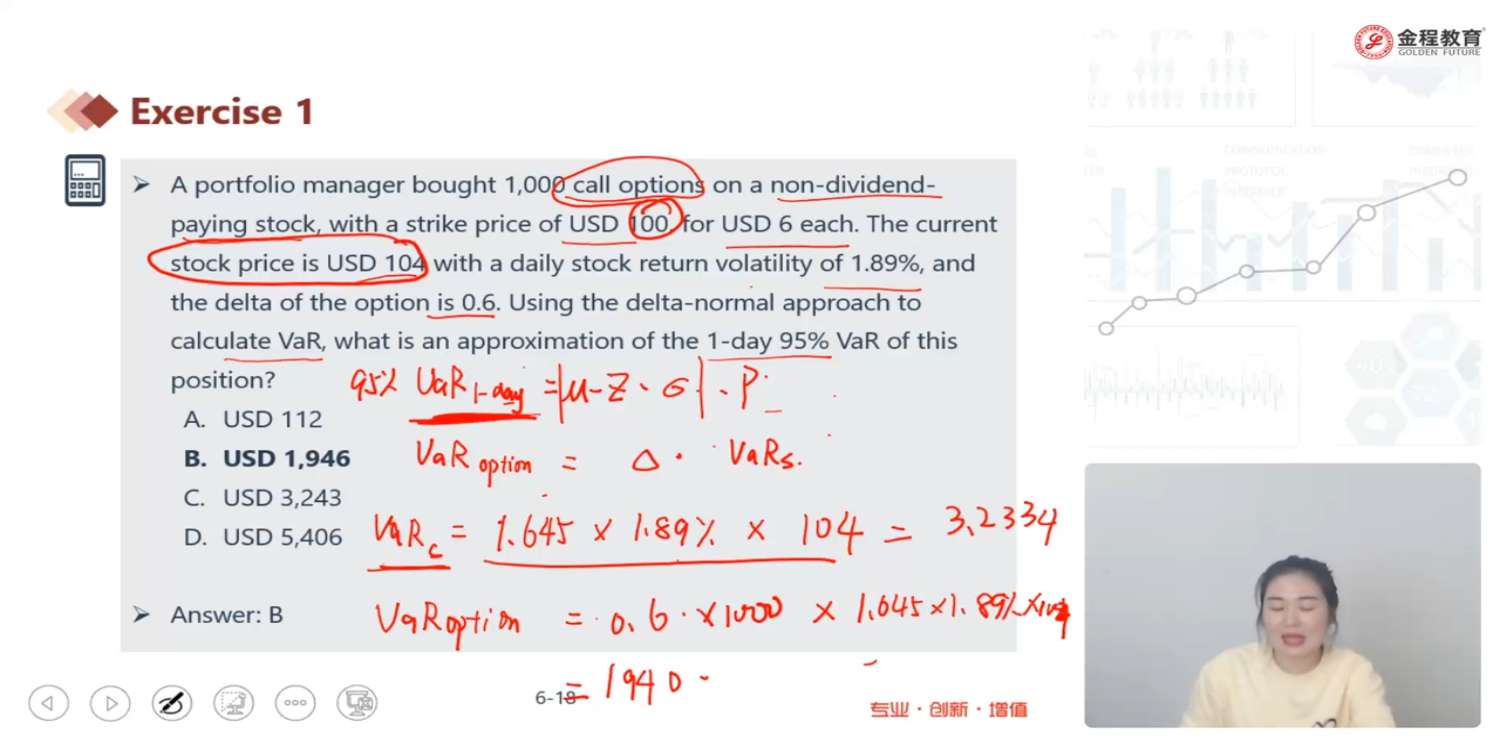 金程教育
GOLDEN FUTURE
Exercise 1
➢ A portfolio manager bought 1,000 call options on a non-dividend-
paying stock, with a strike price of USD 100 for USD 6 each. The current
stock price is USD 104 with a daily stock return volatility of 1.89%, and
the delta of the option is 0.6. Using the delta-normal approach to
calculate VaR, what is an approximation of the 1-day 95% VaR of this
position?
95% VaR 1-day = |μ - Z · σ| · P
A. USD 112
B. USD 1,946
VaR option = Δ · VaR s.
C. USD 3,243
VaR c = 1.645 × 1.89% × 104 = 3.2334
D. USD 5,406
➢ Answer: B
VaR option = 0.6 × 1000 × 1.645 × 1.89% × 104
= 1940
6-18
专业 · 创新 · 增值